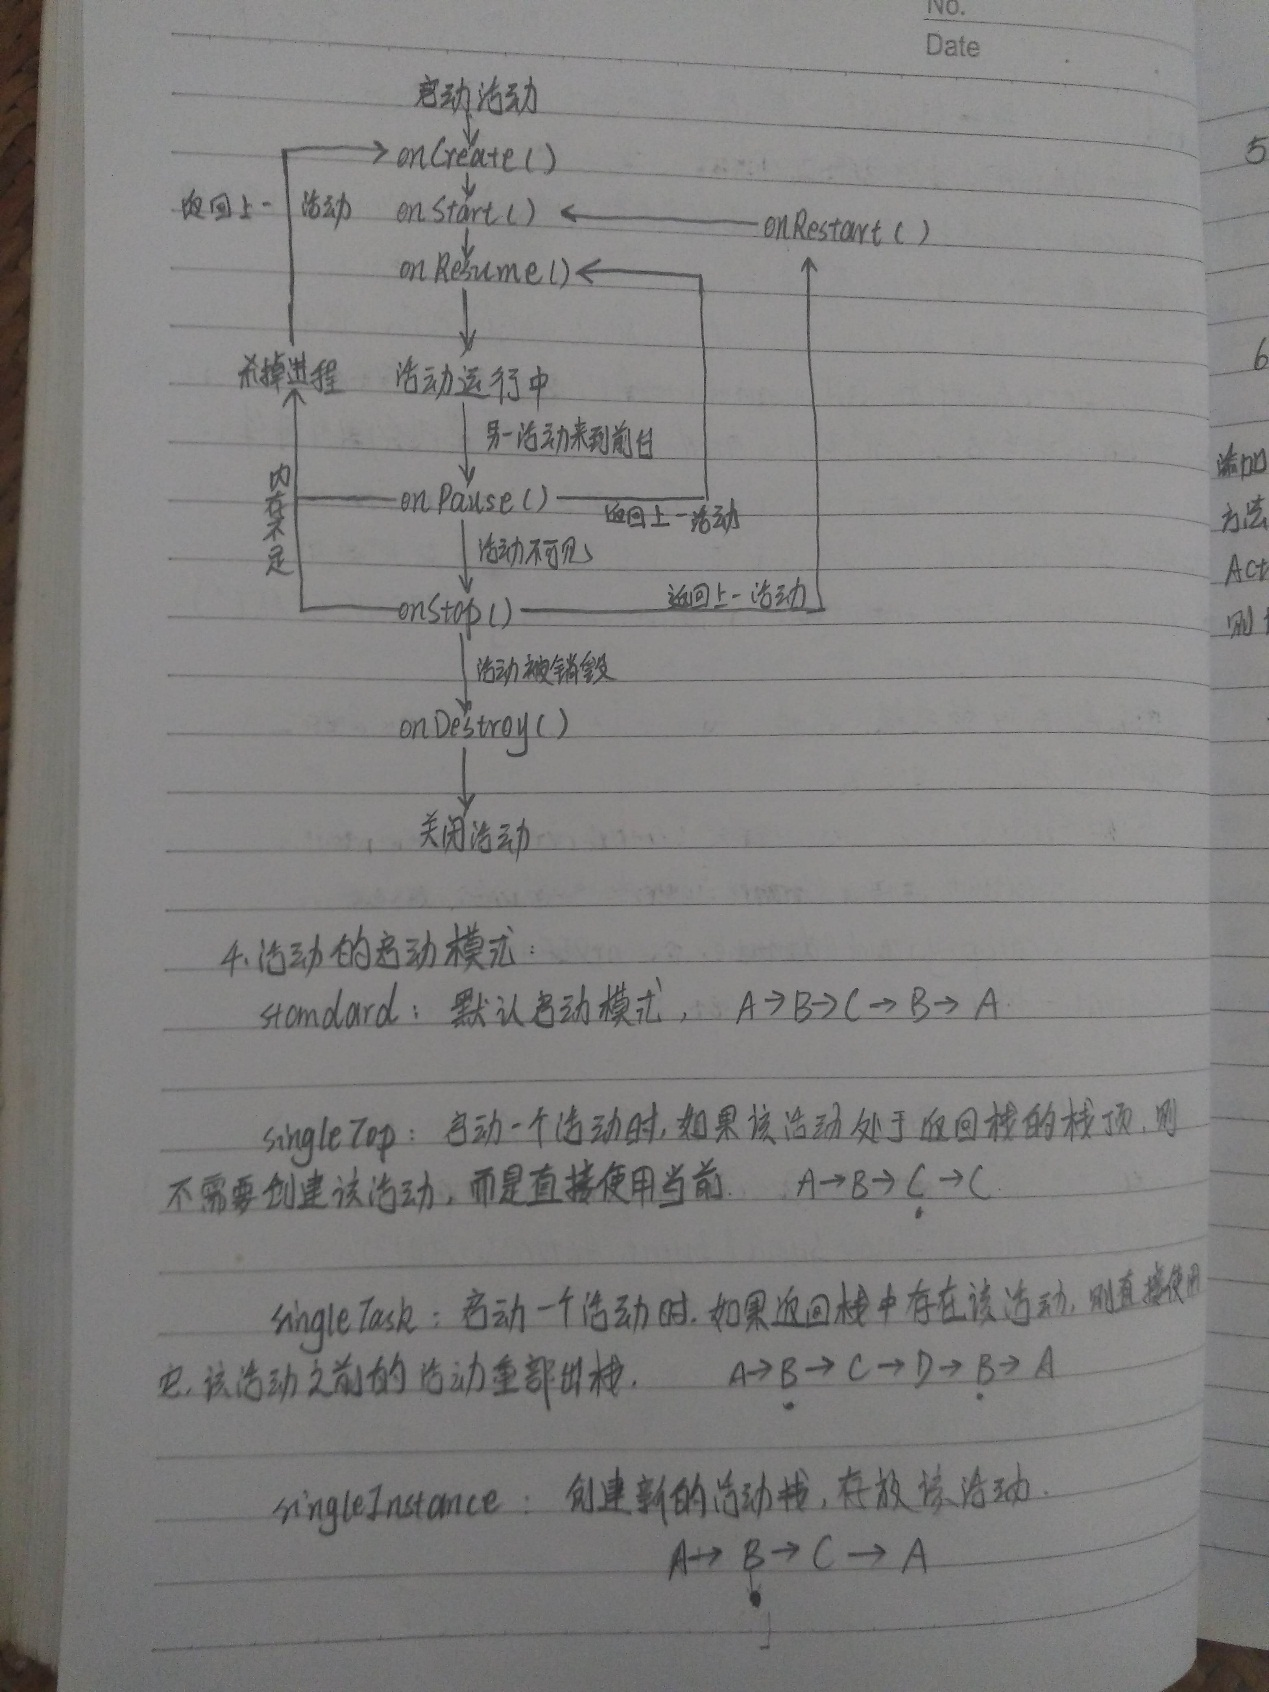 No.
Date
启动活动
onCreate()
返回上一 活动 onStart() onRestart()
onResume()
杀掉进程 活动运行中
另一活动来到前台
内存不足
onPause() 返回上一活动
活动不可见
onStop() 返回上一活动
活动被销毁
onDestroy()
关闭活动
4、活动的启动模式:
standard: 默认启动模式, A→B→C→B→A
singleTop: 启动一个活动时,如果该活动处于返回栈的栈顶,则
不需要创建该活动,而是直接使用当前. A→B→C→C
singleTask: 启动一个活动时.如果返回栈中存在该活动,则直接使用
它,该活动之前的活动全部出栈. A→B→C→D→B→A
singleInstance: 创建新的活动栈,存放该活动.
A→B→C→A
5
6
添加
方法
Act
则